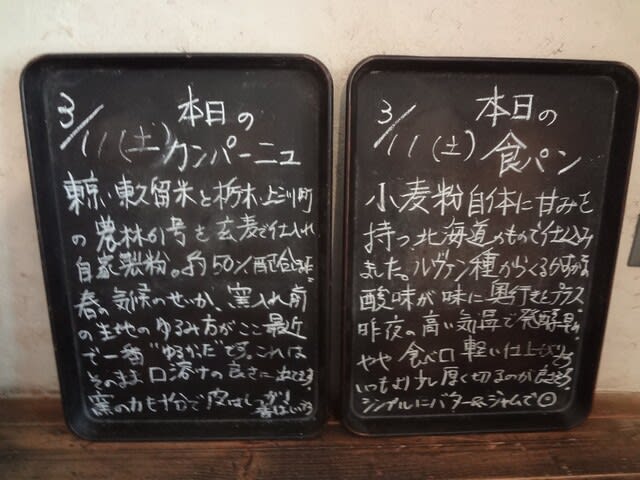 3/11(土) 本日の
カンパーニュ
東京、東久留米と栃木、上三川町
の農林61号を玄麦で仕入れ
自家製粉。約50%配合
春の気候のせいか、窯入れ前
の生地のゆるみ方がここ最近
で一番"ゆるかった"です。これは
そのまま口溶けの良さに
窯の力も十分で皮はしっかり
3/11(土) 本日の
食パン
小麦粉自体に甘みを
持つ北海道のもので仕込み
ました。ルヴァン種からくるかすかな
酸味が味に奥行きをプラス
昨夜の高い気温で発酵早め
やや食べ口軽い仕上がり
いつもより少し厚く切るのが良さそう
シンプルにバター&ジャムで